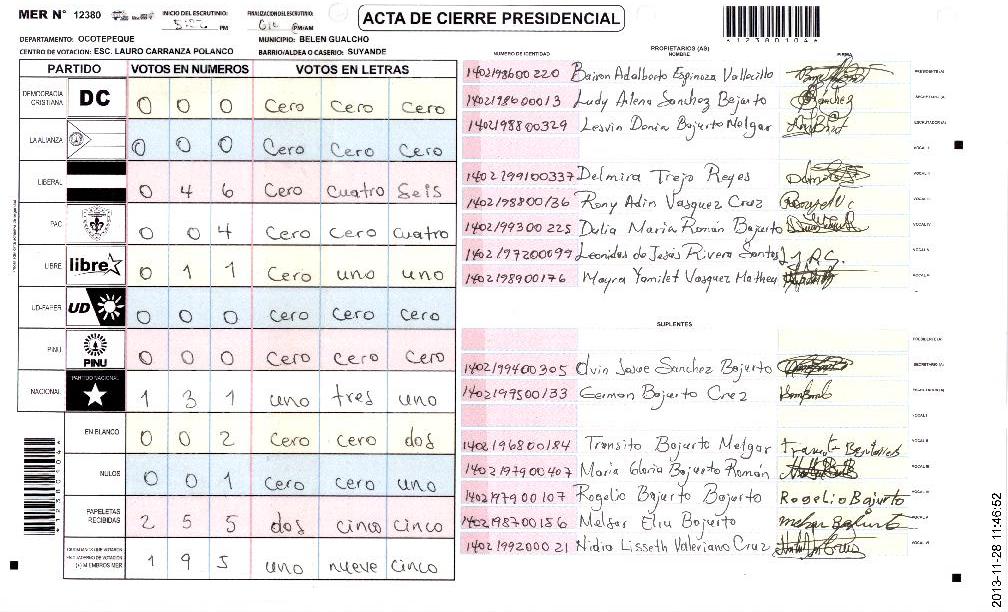 MER N° 12380
INICIO DEL ESCRUTINIO: PM
FINALIZACION DEL ESCRUTINIO: PM/AM
ACTA DE CIERRE PRESIDENCIAL
*12380104*
DEPARTAMENTO: OCOTEPEQUE
MUNICIPIO: BELEN GUALCHO
CENTRO DE VOTACION: ESC. LAURO CARRANZA POLANCO
BARRIO/ALDEA O CASERIO: SUYANDE
PARTIDO VOTOS EN NUMEROS VOTOS EN LETRAS
DEMOCRACIA CRISTIANA DC 0 0 0 Cero Cero Cero
LA ALIANZA 0 0 0 Cero Cero Cero
LIBERAL 0 4 6 Cero cuatro Seis
PAC 0 0 4 Cero Cero cuatro
LIBRE libre 0 1 1 Cero uno uno
UD-FAPER UD 0 0 0 Cero Cero Cero
PINU PINU 0 0 0 Cero Cero Cero
NACIONAL PARTIDO NACIONAL 1 3 1 uno tres uno
EN BLANCO 0 0 2 Cero cero dos
NULOS 0 0 1 Cero Cero uno
PAPELETAS RECIBIDAS 2 5 5 dos cinco cinco
CIUDADANOS QUE VOTARON EN CUADERNO DE VOTACION (+) MIEMBROS MER 1 9 5 uno nueve cinco
*12380104*
PROPIETARIOS (AS)
NUMERO DE IDENTIDAD NOMBRE FIRMA
1402198600220 Bairon Adalberto Espinoza Vallecillo PRESIDENTE(A)
1402198600013 Ludy Arlena Sanchez Bajurto SECRETARIO(A)
1402198800329 Lesvin Donin Bajurto Melgar ESCRUTADOR(A)
VOCAL I
1402199100337 Delmira Trejo Reyes VOCAL II
1402198800136 Rony Adin Vasquez Cruz VOCAL III
1402199300225 Dulia Maria Román Bajurto VOCAL IV
1402197200099 Leonidas de Jesús Rivera Santos L.J.R.S. VOCAL V
1402198900176 Mayra Yamilet Vasquez Matheu
SUPLENTES
PRESIDENTE(A)
1402199400305 Josue Sanchez Bajurto SECRETARIO(A)
1402199500133 German Bajurto Cruz
VOCAL I
1402196800184 Transito Bajurto Melgar VOCAL II
1402197900407 Maria Gloria Bajurto Román VOCAL III
1402197900107 Rogelio Bajurto Bajurto Rogelio Bajurto
1402198700156 Melgar Eliu Bajurto VOCAL V
1402199200021 Nidia Lisseth Valeriano Cruz VOCAL VI
2013-11-28 11:46:52